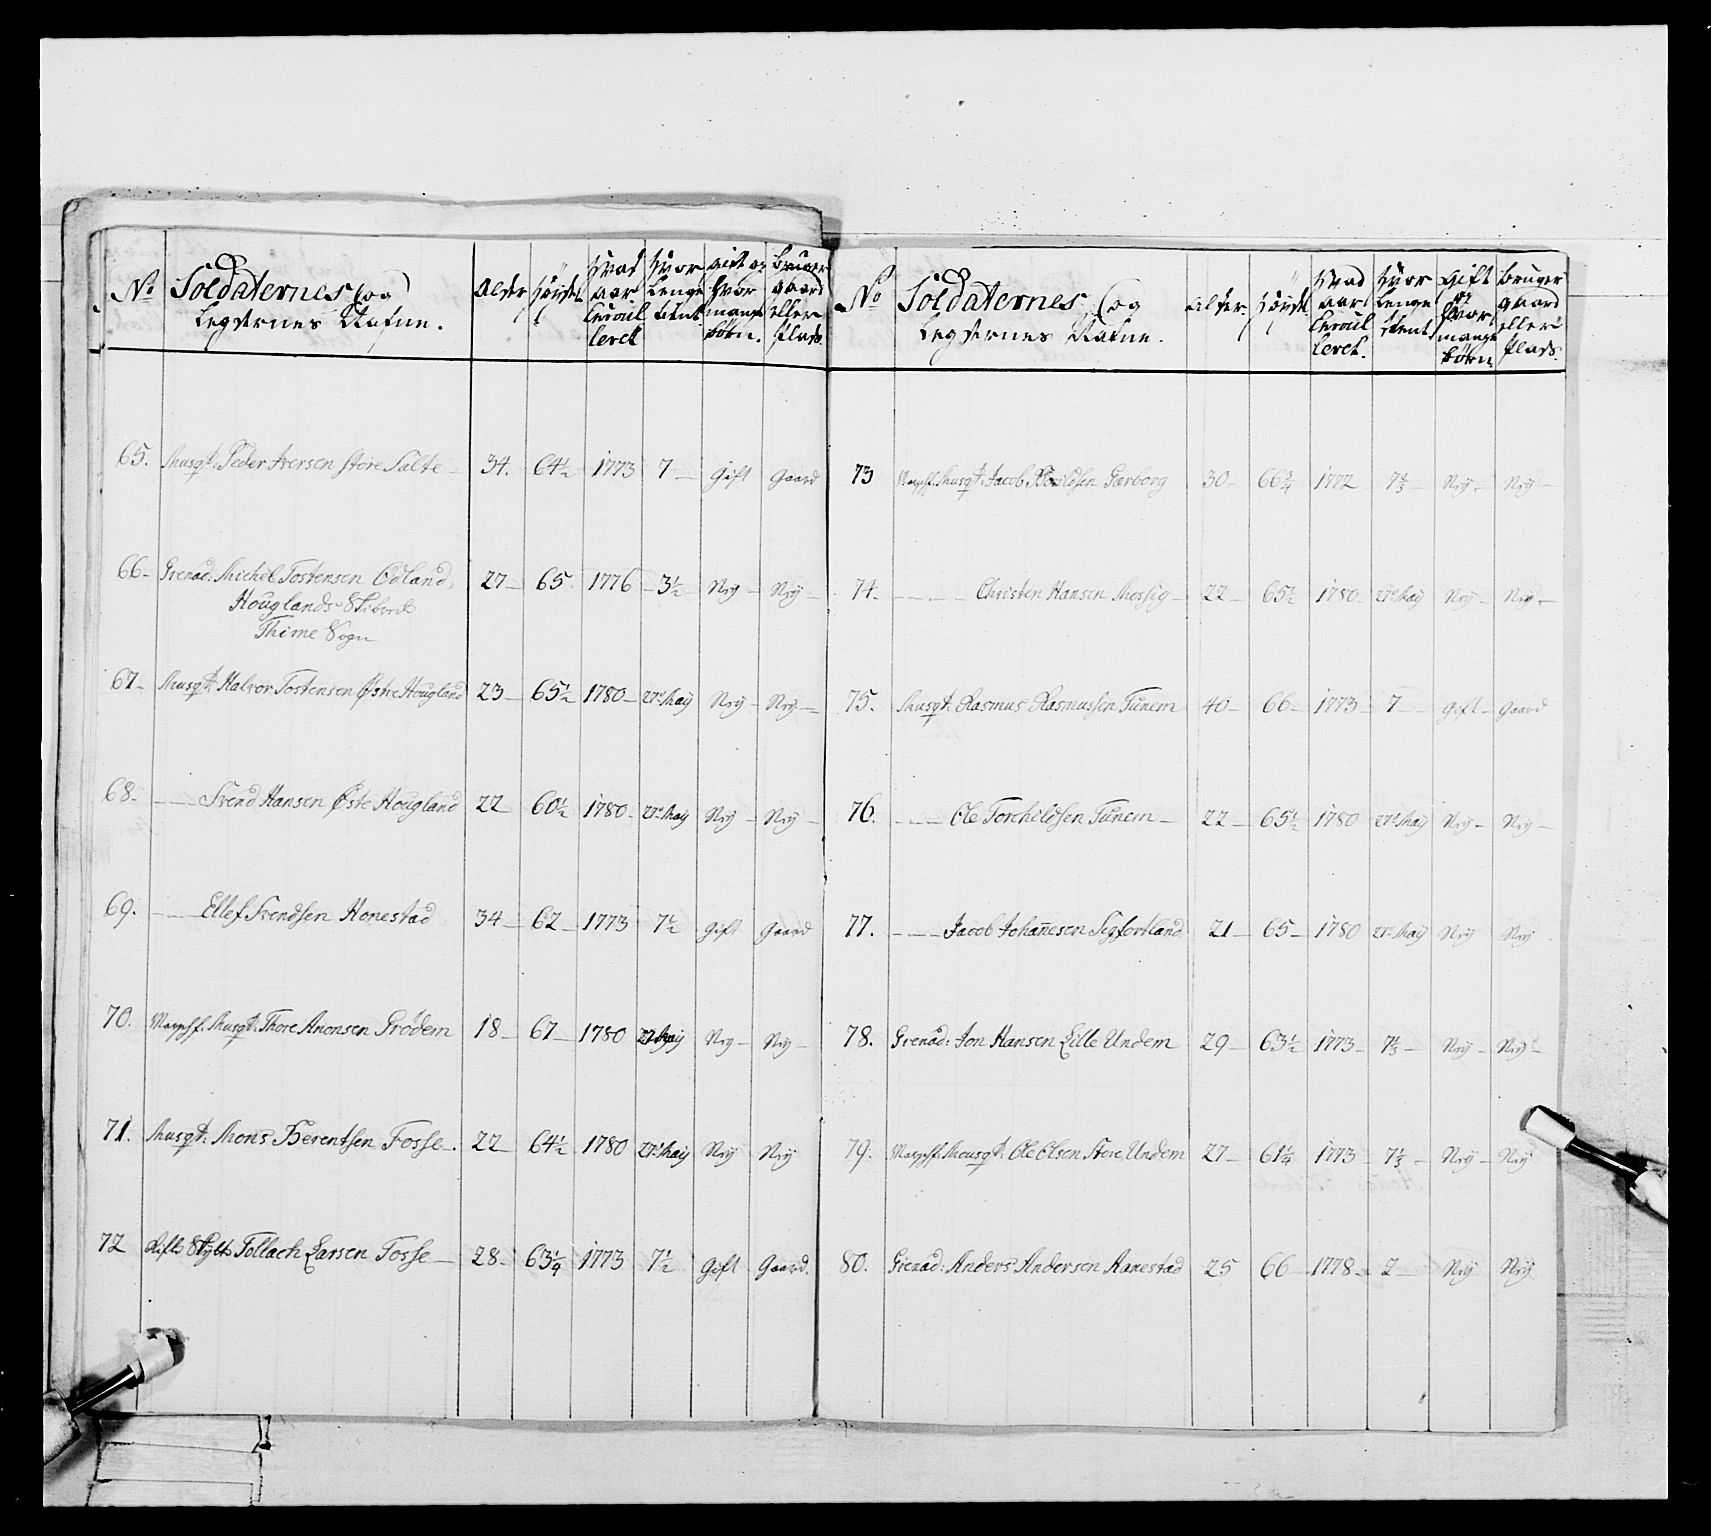 No Soldaternes og Legdernes Nafne. Alder Høyde Hvad aar Enroulleret Hvor Lenge tient gift og Hvor mange børn. bruger gaard eller Plads.
65. Musqt: Peder Iversen store Salte 34. 64½ 1773 7 — gift gaard
66 — Grenad: Michel Tostensen Odland, 27 — 65 1776 — 3½ Nej — Nej —
Houglands
Thime Sogn
67 — Musqt: Halvor Tostensen Østre Hougland 23 — 65½ 1780 — 27e Maij Nej — Nej —
68 — — — Svend Hansen Øste Hougland 22 60½ 1780 — 27e Maij Nej — Nej —
69. — — Ellef Svendsen Honestad 34 — 62 — 1773 7½ gift gaard
70. Musqt: Thore Anonsen Grødem 18 — 67 — 1780 27 Maij Nej — Nej —
71. Musqt: Mons Berentsen Fosse. 22 — 64½ 1780 27e Maij Nej Nej
72 Tollach Larsen Fosse — 28 — 63¼ 1773 7½ gift Gaard.
No Soldaternes og Legdernes Nafne. Alder Høyde Hvad aar Enroulleret. Hvor Lenge tient gift og Hvor mange børn bruger gaard eller Plads.
73 Musqt: Jacob Gærborg 30 — 66¾ 1772 7⅓ — Nej — Nej —
74 — — — — Christen Hansen Mossig — 22 — 65½ 1780 — 27e Maij Nej — Nej —
75. Musqt: Rasmus Rasmussen Tunem 40 — 66 — 1773 — 7 — gift — gaard
76. — — — Ole Torcheldsen Tunem — 22 — 65½ 1780 27e Maij Nej — Nej —
77. — — — Jacob Johannesen Sigfortland 21 — 65 — 1780 27e Maij Nej Nej
78. Grenad: Jon Hansen Lille Undem 29 — 63½ 1773 — 7⅓ — Nej — Nej —
79. Mousqt: Ole Olsen Store Undem 27 — 61¼ 1773 — 7⅓ — Nej — Nej
80. Grenad: Anders Andersen Aanestad 25 66 — 1778 — 2 — Nej Nej